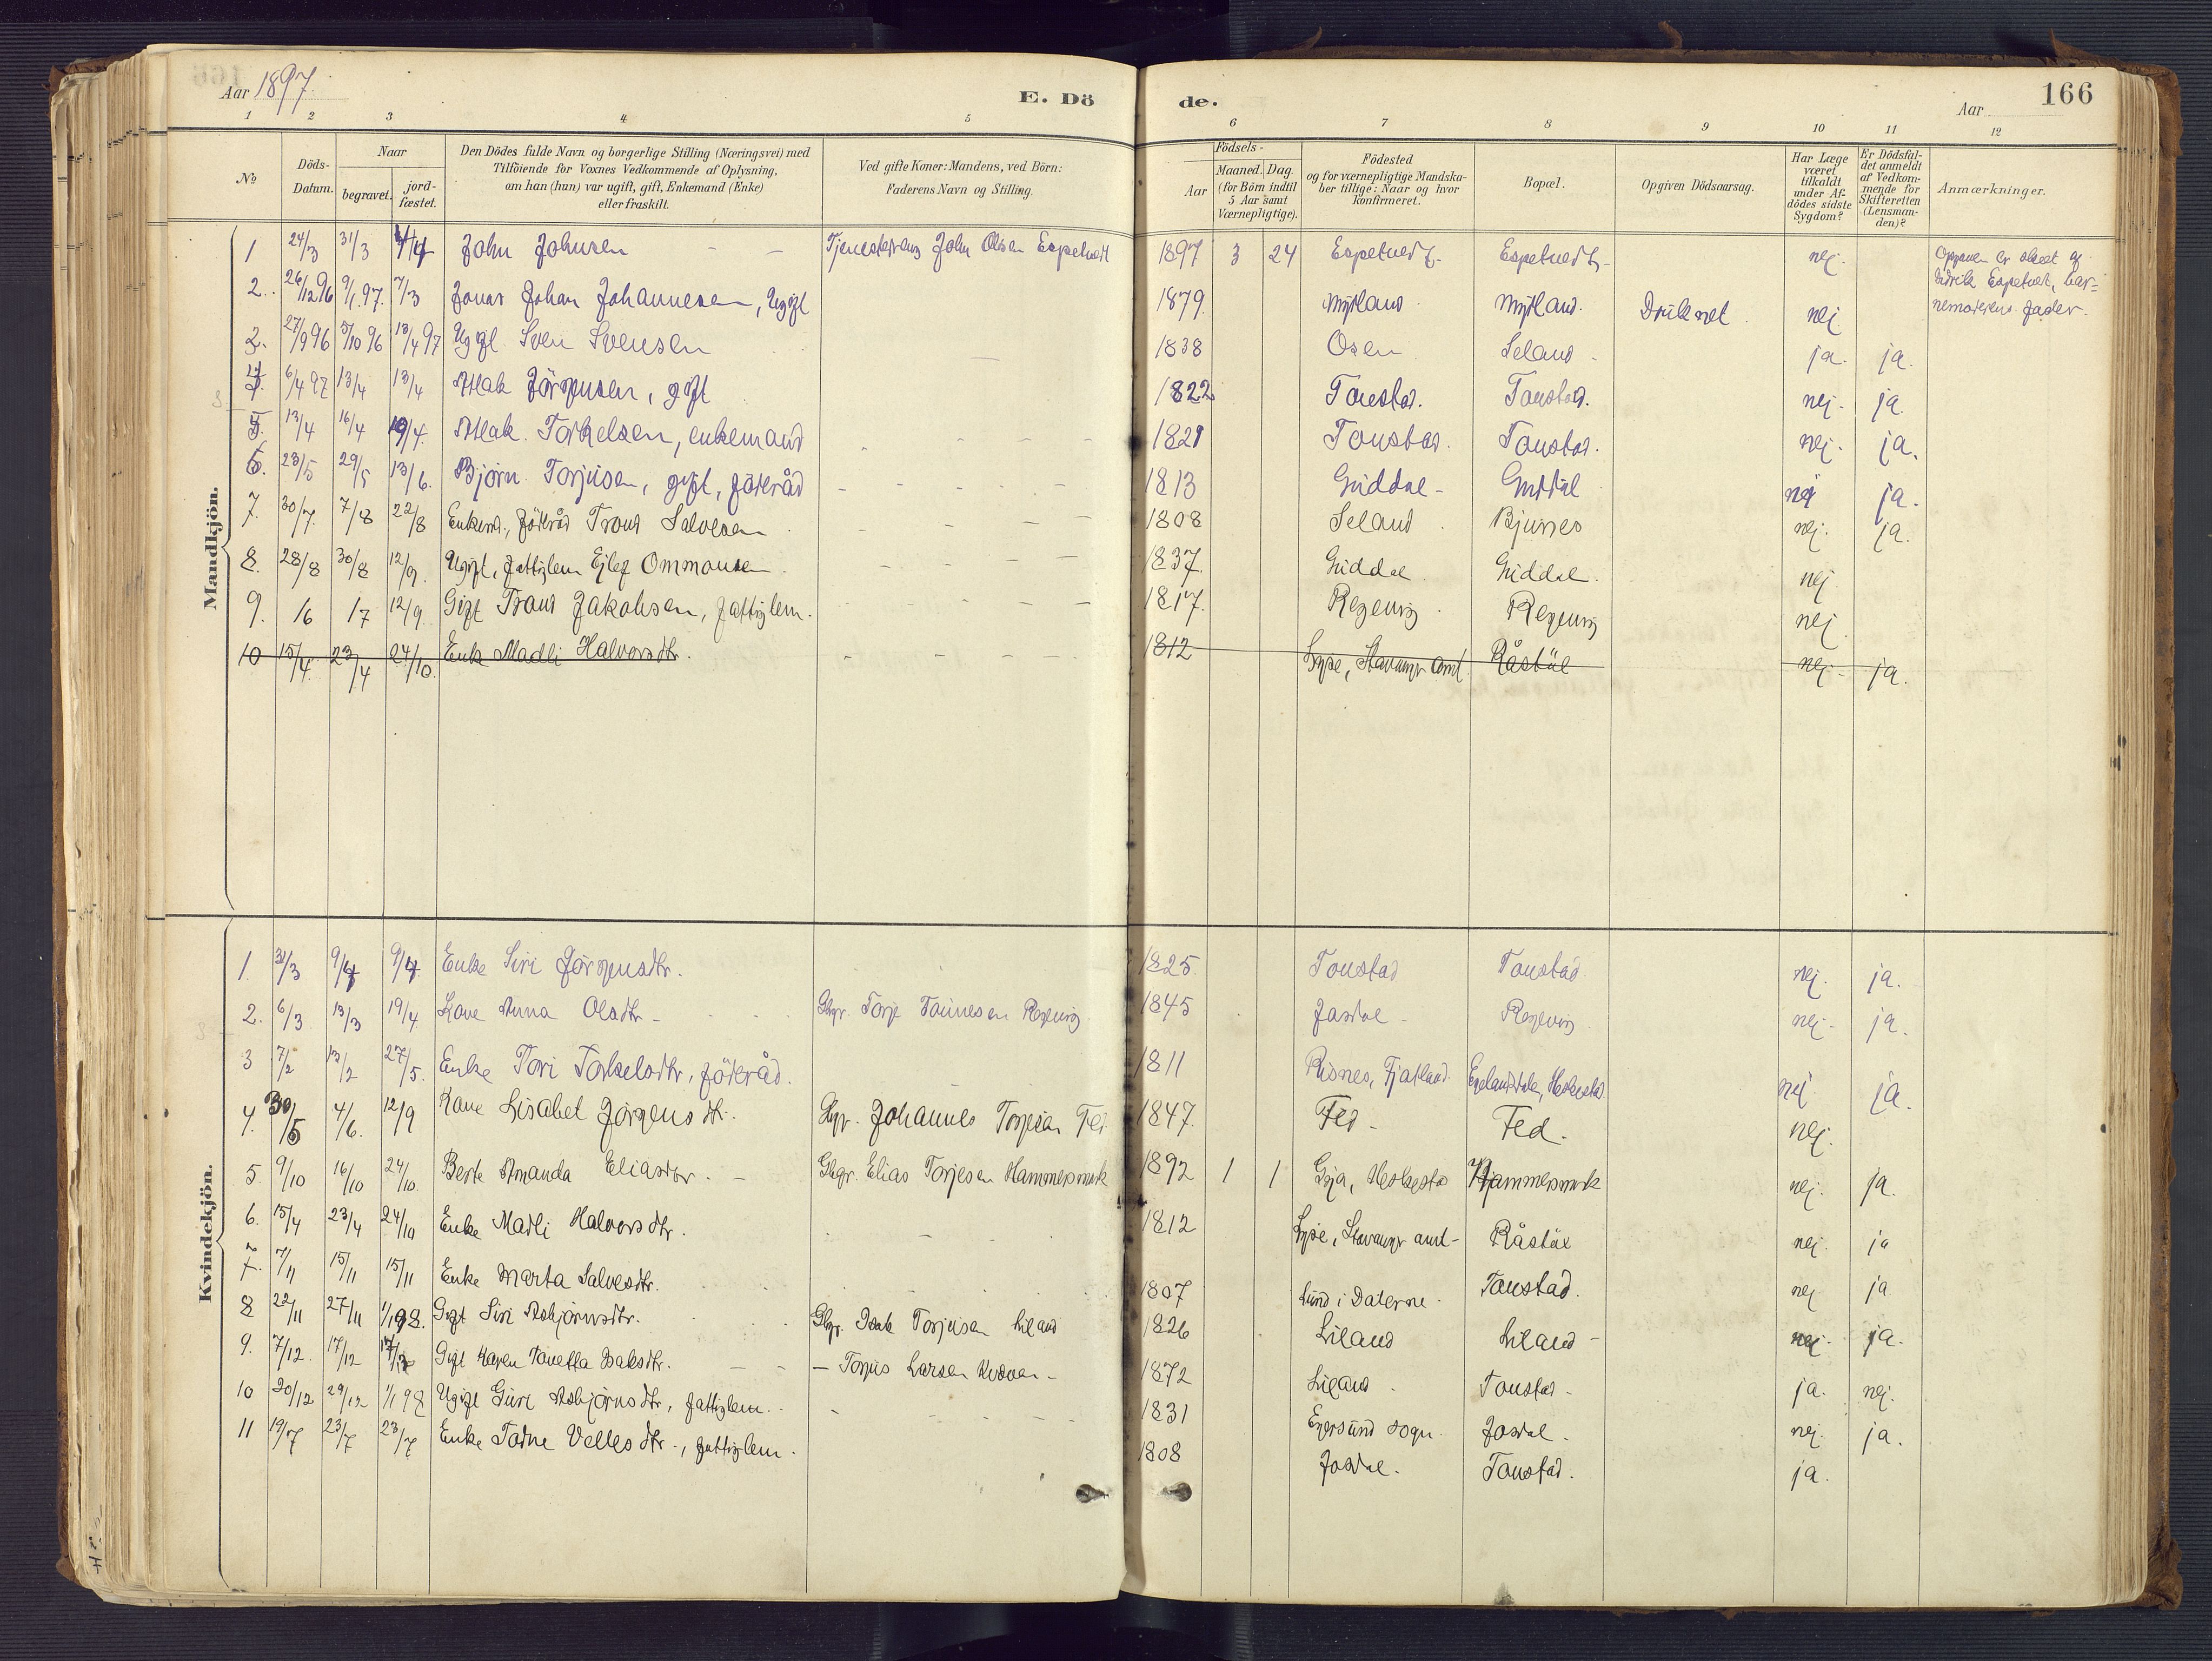 Aar 1897.
E. Dö
de.
Aar
166
1 2 3 4 5 6 7 8 9 10 11 12
No
Döds-Datum.
Naar
begravet.
jord-fæstet.
Den Dödes fulde Navn og borgerlige Stilling (Næringsvei) med Tilföiende for Voxnes Vedkommende af Oplysning, om han (hun) var ugift, gift, Enkemand (Enke) eller fraskilt.
Ved gifte Koner: Mandens, ved Börn: Faderens Navn og Stilling.
Födsels-
Aar
Maaned. Dag.
(for Börn indtil 5 Aar samt Værnepligtige).
Födested og for værnepligtige Mandskaber tillige: Naar og hvor konfirmeret.
Bopæl.
Opgiven Dödsaarsag.
Har Læge været tilkaldt under Afdödes sidste Sygdom?
Er Dödsfaldet anmeldt af Vedkommende for Skifteretten (Lensmanden)?
Anmærkninger.
Mandkjön.
1 24/3 31/3 4/4 John Johnsen - - Tjenestedreng John Olsen Espetvedt 1897 3 24 Espetvedt Espetvedt nej.
2. 26/12 96 9/1 97. 7/3 Jonas Johan Johannesen, Ugift 1879. Mydland Mydland. Druknet nej
3. 27/9 96 5/10 96 13/4 97 Ugift Sven Svensen 1838 Osen Seland ja. ja.
4 6/4 97 13/4 13/4 Atlak Jörgensen, gift 1822 Tonstad. Tonstad. nej. ja.
5. 13/4 16/4 19/4. Atlak Torkelsen, enkemand 1821 Tonstad. Tonstad. nej. ja.
6. 23/5 29/5 13/6. Björn Torjusen, gift, föderåd 1813 Guddal Guddal nej ja.
7. 30/7. 7/8 22/8 Enkem., föderåd Trond Salvesen 1808 Seland Bjunes nej. ja.
8. 28/8 30/8 12/9. Ugift, fattiglem Ejlef Ommonsen 1837. Guddal Guddal. nej.
9. 16 17 12/9. Gift Trond Jakobsen, fattiglem. 1817. Regevig Regevig nej.
10 15/4. 23/4 24/10. Enke Madli Halvorsdtr. 1812 Lyse, Stavanger amt. Råstöl nej. ja.
Kvindekjön.
1. 31/3 9/4 9/4 Enke Siri Jörgensdtr. 1825. Tonstad Tonstad. nej. ja.
2. 6/3 13/3 19/4. Kone Anna Olsdtr. Gbgr. Torje Tönnesen Regevig 1845 Josdal Regevig nej. ja.
3 7/2 13/2 27/5. Enke Tori Torkelsdtr, föderåd. 1811 Risnes, Fjotland. Egelandsdal, Heskestad nej. ja.
4. 30/5 4/6. 12/9 Kone Lisabet Jörgensdtr. Gbgr. Johannes Torjesen Fed 1847. Fed Fed. nej.
5. 9/10 16/10 24/10. Berte Amanda Eliasdtr. Gbgr. Elias Torjesen Hammersmark 1892 1 1 Gya, Heskestad Hammersmark nej. ja.
6. 15/4 23/4 24/10 Enke Madli Halvorsdtr. 1812 Lyse, Stavanger amt Råstöl nej. ja
7. 7/11 15/11 15/11 Enke Marta Salvesdtr. 1807 Lund i Dalerne. Tonstad. nej ja
8 22/11 27/11 1/1 98. Gift Siri Asbjörnsdtr. Gbgr. Isak Torjusen Liland 1826 Liland Liland nej. ja.
9. 7/12. 17/12 17/12 Gift Karen Tonetta Isaksdtr. — Torjus Larsen Kvæven 1872 Liland Tonstad ja. nej.
10 20/12 29/12 1/1 98 Ugift Guri Asbjörnsdtr, fattiglem. 1831 Egersund sogn Josdal. nej. ja.
11 19/7 23/7 23/7 Enke Todne Vellesdtr., fattiglem. 1808 Josdal. Tonstad. ja.